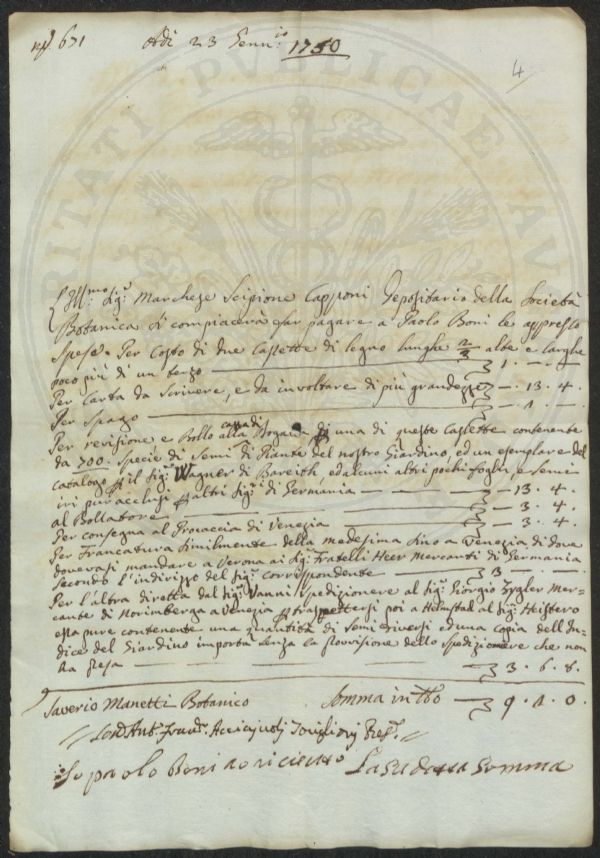 671
Adì 23 Genn.io 1750
4
L'Ill.mo Sig.r Marchese Scipione Capponi Depositario della Società
Botanica si compiacerà far pagare a Paolo Boni le appresso
Spese. Per Costo di due Cassette di legno lunghe 2/3 alte e larghe
poco più di un terzo — 1. — —
Per Carta da Scrivere, e da involtare di più grandezze — . 13 . 4 .
Per Spago — . 1 . —
Per revisione e Bollo alla cassa di Dogana di una di queste Cassette contenente
da 700. Specie di Semi di Piante del nostro Giardino, ed un esemplare del
Catalogo p il Sig.r Wagner di Bareith, ed alcuni altri pochi fogli e semi
ivi pur acclusi p altri Sig.ri di Germania — — — 13 . 4 .
al Bollatore — — . 3 . 4 .
Per consegna al Procaccia di Venezia — — . 3 . 4 .
Per Francatura similmente della medesima sino a Venezia di dove
dovevasi mandare a Verona ai Sig.ri Fratelli Heer Mercanti di Germania
Secondo l'indirizzo del Sig.r corrispondente — 3 — —
Per l'altra diretta dal Sig.r Vanni Spedizioniere al Sig.r Giorgio Zygler Mer-
cante di Norimberga a Venezia p trasmettersi poi a Helmstad al Sig.r Heistero
essa pure contenente una quantità di Semi diversi ed una copia dell'In-
dice del Giardino importa senza la provvisione dello Spedizioniere che non
ha presa — — — 3 . 6 . 8 .
Saverio Manetti Botanico Somma in tto — 9 . 1 . 0 .
Ant.o Fran.o Acciajuoli
Io paolo Boni o riceuto La Sudetta Somma
RITATI PVBLICAE AV